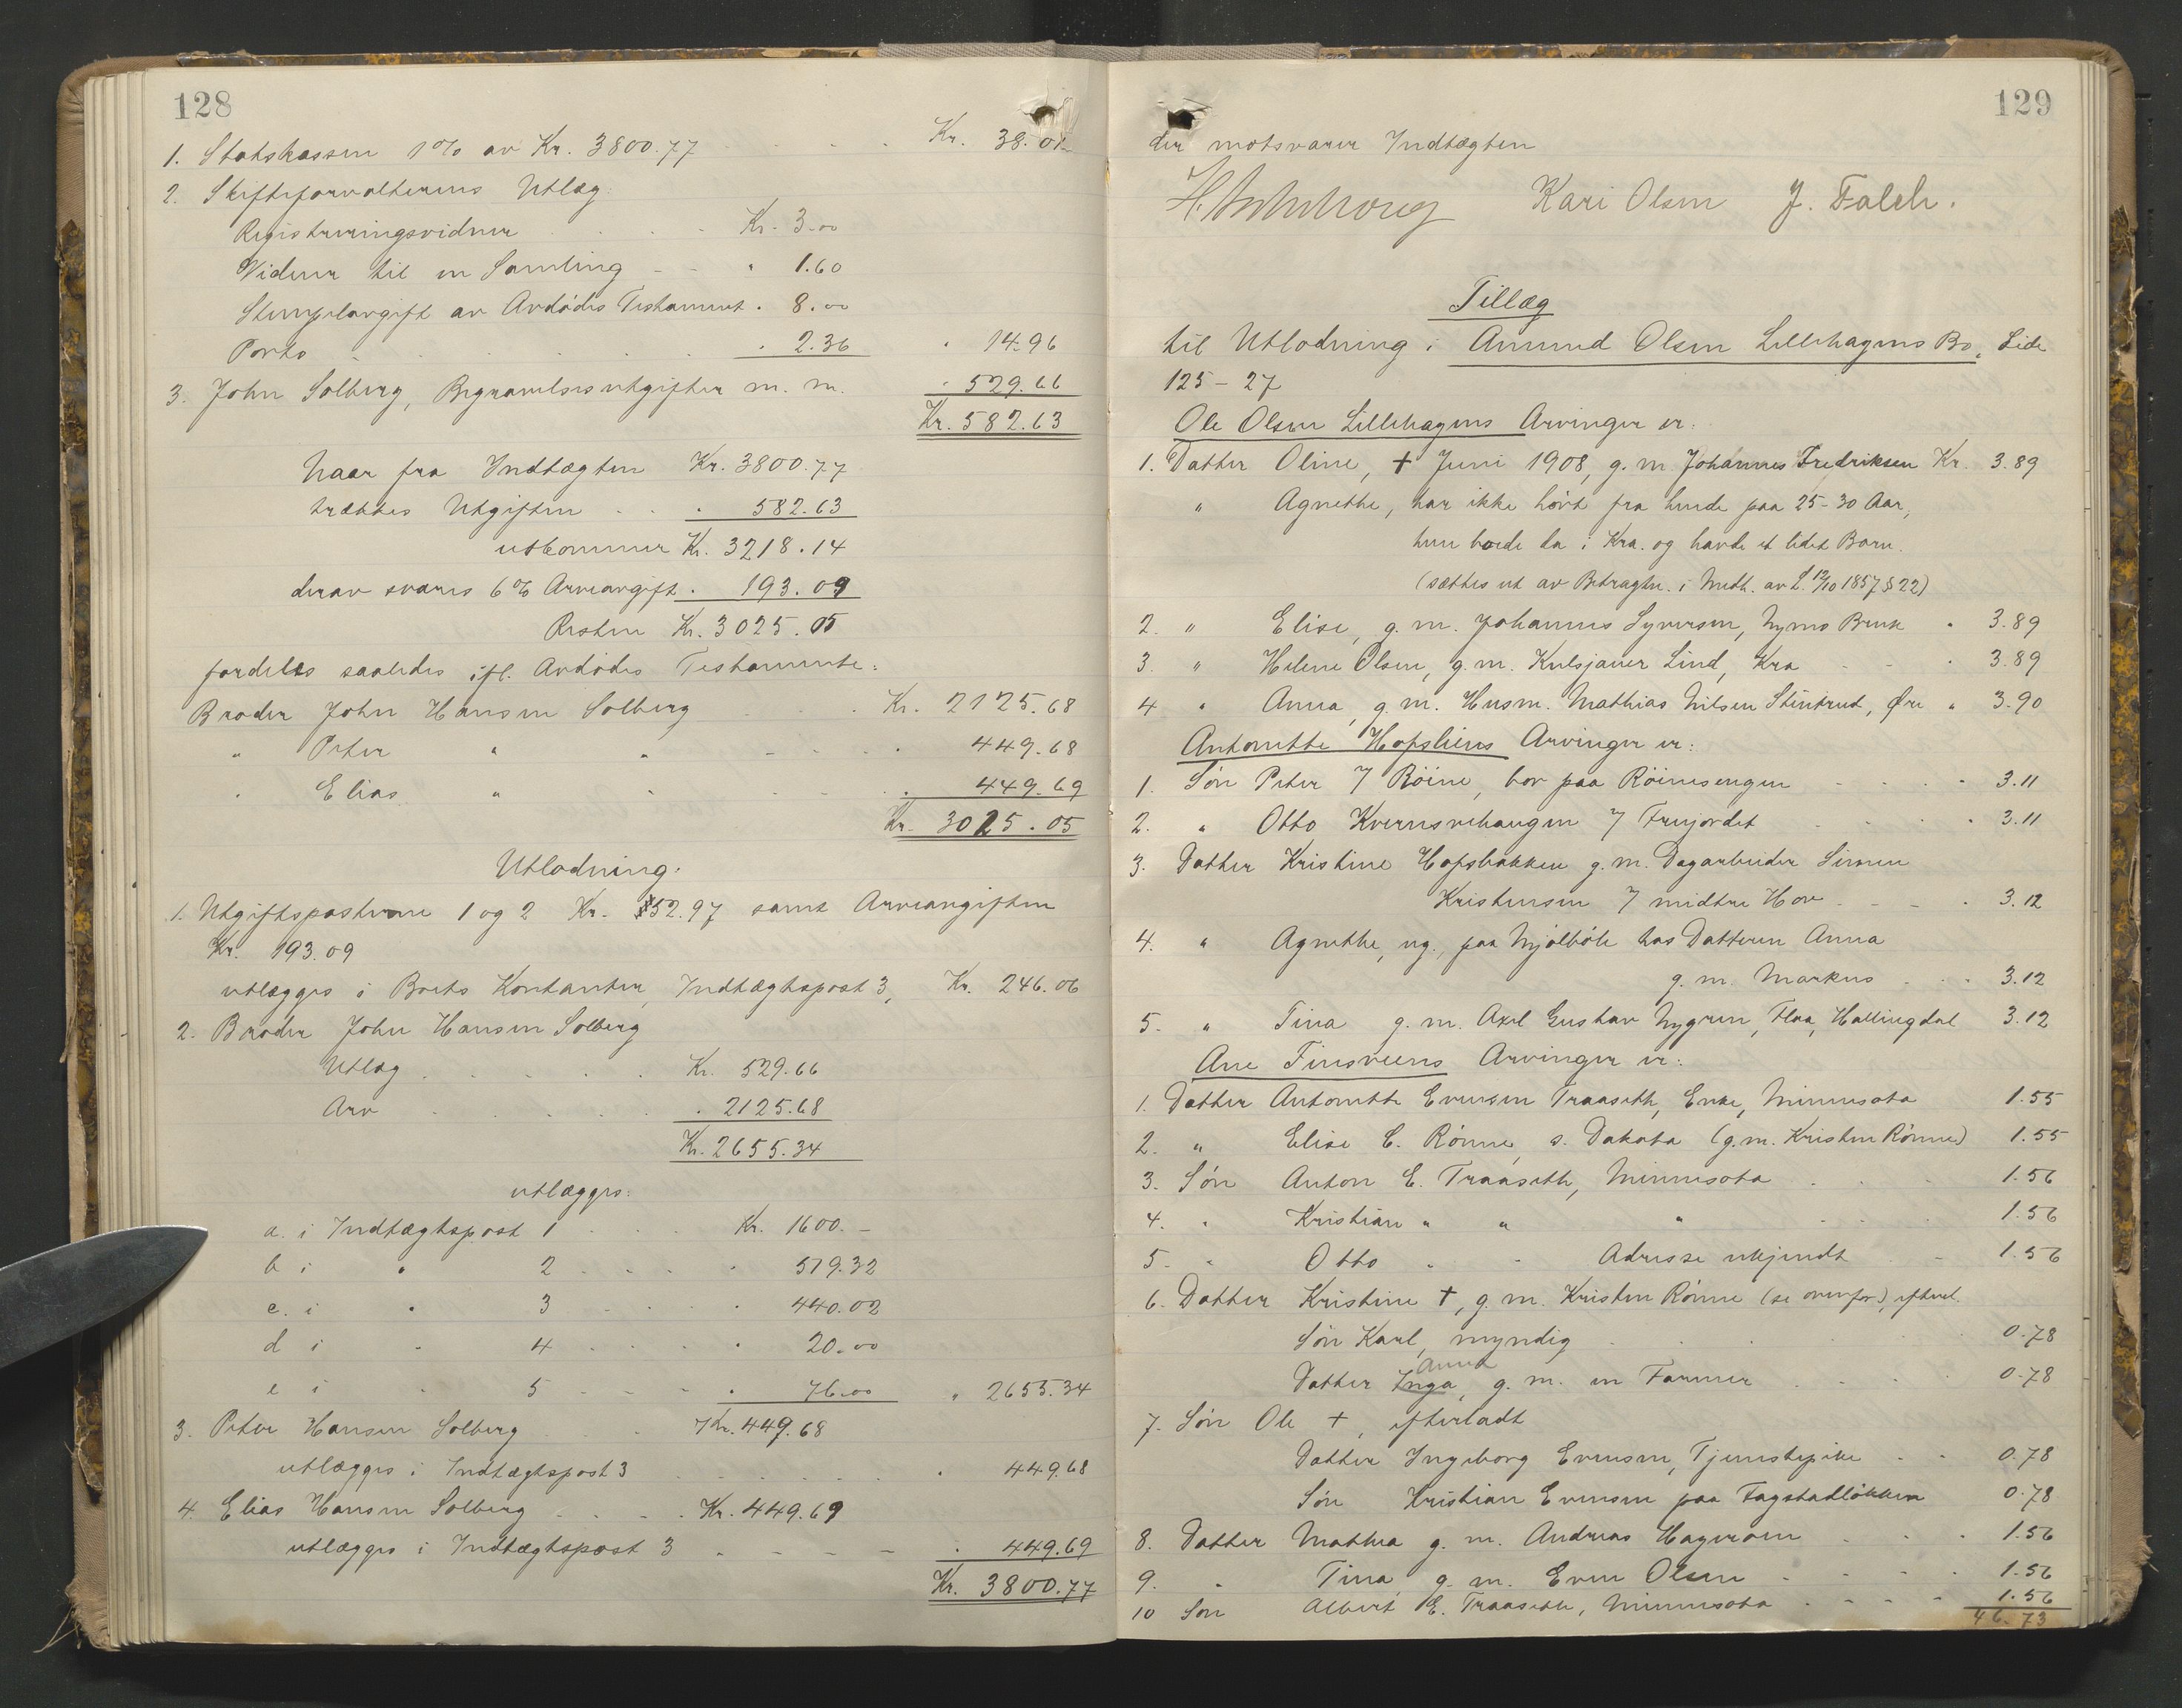 128
1. Statskassen 1% av Kr. 3800.77 Kr. 38.01
2. Skifteforvalterens Utlæg:
Registreringsvidner Kr. 3.00
Vidner til en Samling " 1.60
Stempelavgift av Avdødes Testament " 8.00
Porto " 2.36 " 14.96
3. John Solberg, Begravelsesutgifter m. m. " 529.66
Kr. 582.63
Naar fra Indtægten Kr. 3800.77
trækkes Utgiften " 582.63
utkommer Kr. 3218.14
derav svares 6% Arveavgift " 193.09
Resten Kr. 3025.05
fordeles saaledes ifl. Avdødes Testamente:
Broder John Hansen Solberg Kr. 2125.68
" Peter " " " 449.68
" Elias " " " 449.69
Kr. 3025.05
Utlodning:
1. Utgiftsposterne 1 og 2 Kr. 52.97 samt Arveavgiften
Kr. 193.09
utlægges i Boets Kontanter, Indtægtspost 3, Kr. 246.06
2. Broder John Hansen Solberg
Utlæg Kr. 529.66
Arv " 2125.68
Kr. 2655.34
utlægges:
a. i Indtægtspost 1 Kr. 1600.–
b i " 2 " 519.32
c. i " 3 " 440.02
d i " 4 " 20.00
e i " 5 " 76.00 " 2655.34
3. Peter Hansen Solberg Kr. 449.68
utlægges i Indtægtspost 3 " 449.68
4. Elias Hansen Solberg Kr. 449.69
utlægges i Indtægtspost 3 " 449.69
Kr. 3800.77
129
der motsvarer Indtægten
Kari Olsen J. Falch.
Tillæg
til Utlodning i Amund Olsen Lillehagens Bo, Side
125–27
Ole Olsen Lillehagens Arvinger er:
1. Datter Oline, † Juni 1908, g. m. Johannes Fredriksen Kr. 3.89
" Agnethe, har ikke hørt fra hende paa 25–30 Aar,
hun boede da i Kra. og havde et lidet Barn.
(sættes ut av Betragtn. i Medh. av L. 12/10 1857 § 22)
2. " Elise, g. m. Johannes Syversen, Nymo Bruk " 3.89
3. " Helene Olsen, g. m. Kulsjauer Lind, Kra " 3.89
4 " Anna, g. m. Husm. Mathias Nilsen Stenkrud, Øre " 3.90
Antonette Hofsliens Arvinger er:
1. Søn Peter 7 Röine, bor paa Röinesengen " 3.11
2. " Otto Kvernsvehaugen 7 Frujordet " 3.11
3. Datter Kristine Hofsbakken g. m. Dagarbeider Simen
Kristensen 7 midtre Hov " 3.12
4. " Agnethe, ug., paa Mjölbök hos Datteren Anna
g. m. Markus " 3.12
5. " Tina g. m. Axel Gustav Nygren, Flaa, Hallingdal 3.12
Ane Finsveens Arvinger er:
1. Datter Antonette Evensen Traaseth, Enke, Minnesota 1.55
2. " Elise E. Rønne, s. Dakota (g. m. Kristen Rønne) 1.55
3. Søn Anton E. Traaseth, Minnesota 1.56
4. " Kristian " " " 1.56
5. " Otto " " Adresse ukjendt 1.56
6. Datter Kristine †, g. m. Kristen Rønne (se ovenfor), efterl.
Søn Karl, myndig 0.78
Anna
Datter Inga, g. m. en Farmer 0.78
7. Søn Ole †, efterladt
Datter Ingeborg Evensen, Tjenestepike 0.78
Søn Kristian Evensen paa Fagstadløkken 0.78
8. Datter Mathea g. m. Andreas Hageroen 1.56
9. " Tina g. m. Even Olsen 1.56
10 Søn Albert E. Traaseth, Minnesota 1.56
46.73